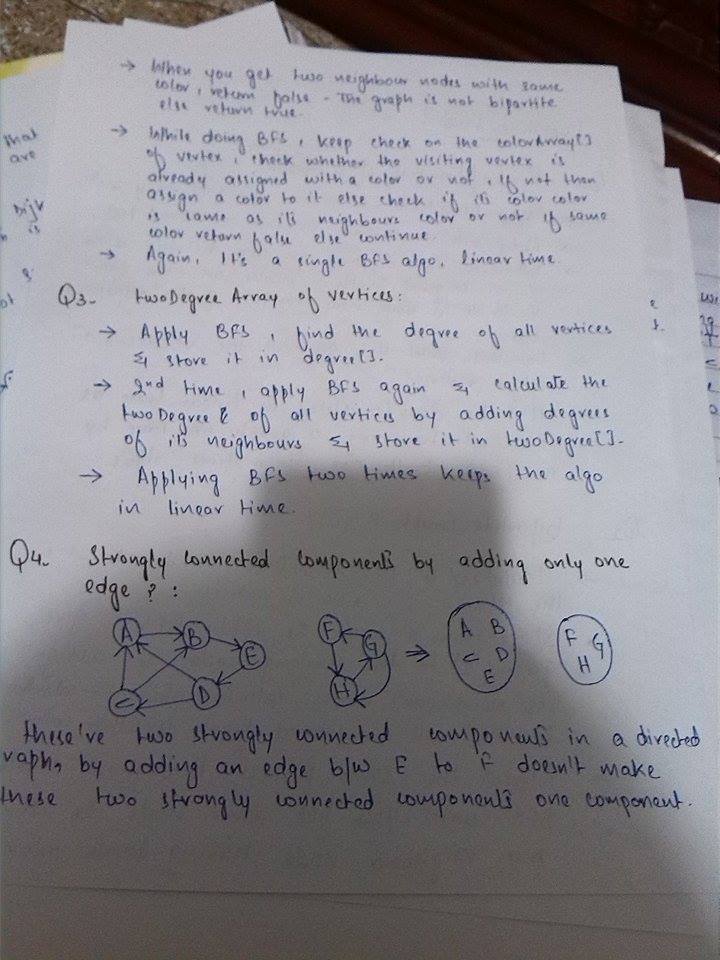 → When you get two neighbour nodes with same
color, return false - The graph is not bipartite
else return true.
→ While doing BFS, keep check on the colorArray[]
of vertex, check whether the visiting vertex is
already assigned with a color or not. If not then
assign a color to it else check if its color color
is same as its neighbours color or not if same
color return false else continue.
→ Again, It's a single BFS algo, linear time.
Q3- twoDegree Array of vertices:
→ Apply BFS, find the degree of all vertices
& store it in degree[].
→ 2nd time, apply BFS again & calculate the
twoDegree of all vertices by adding degrees
of its neighbours & store it in twoDegree[].
→ Applying BFS two times keeps the algo
in linear time.
Q4. Strongly connected components by adding only one
edge ? :
A B E C D
F G H
⇒
A B C D E
F G H
these've two strongly connected components in a directed
raph, by adding an edge b/w E to F doesn't make
these two strongly connected components one component.
that
are
is